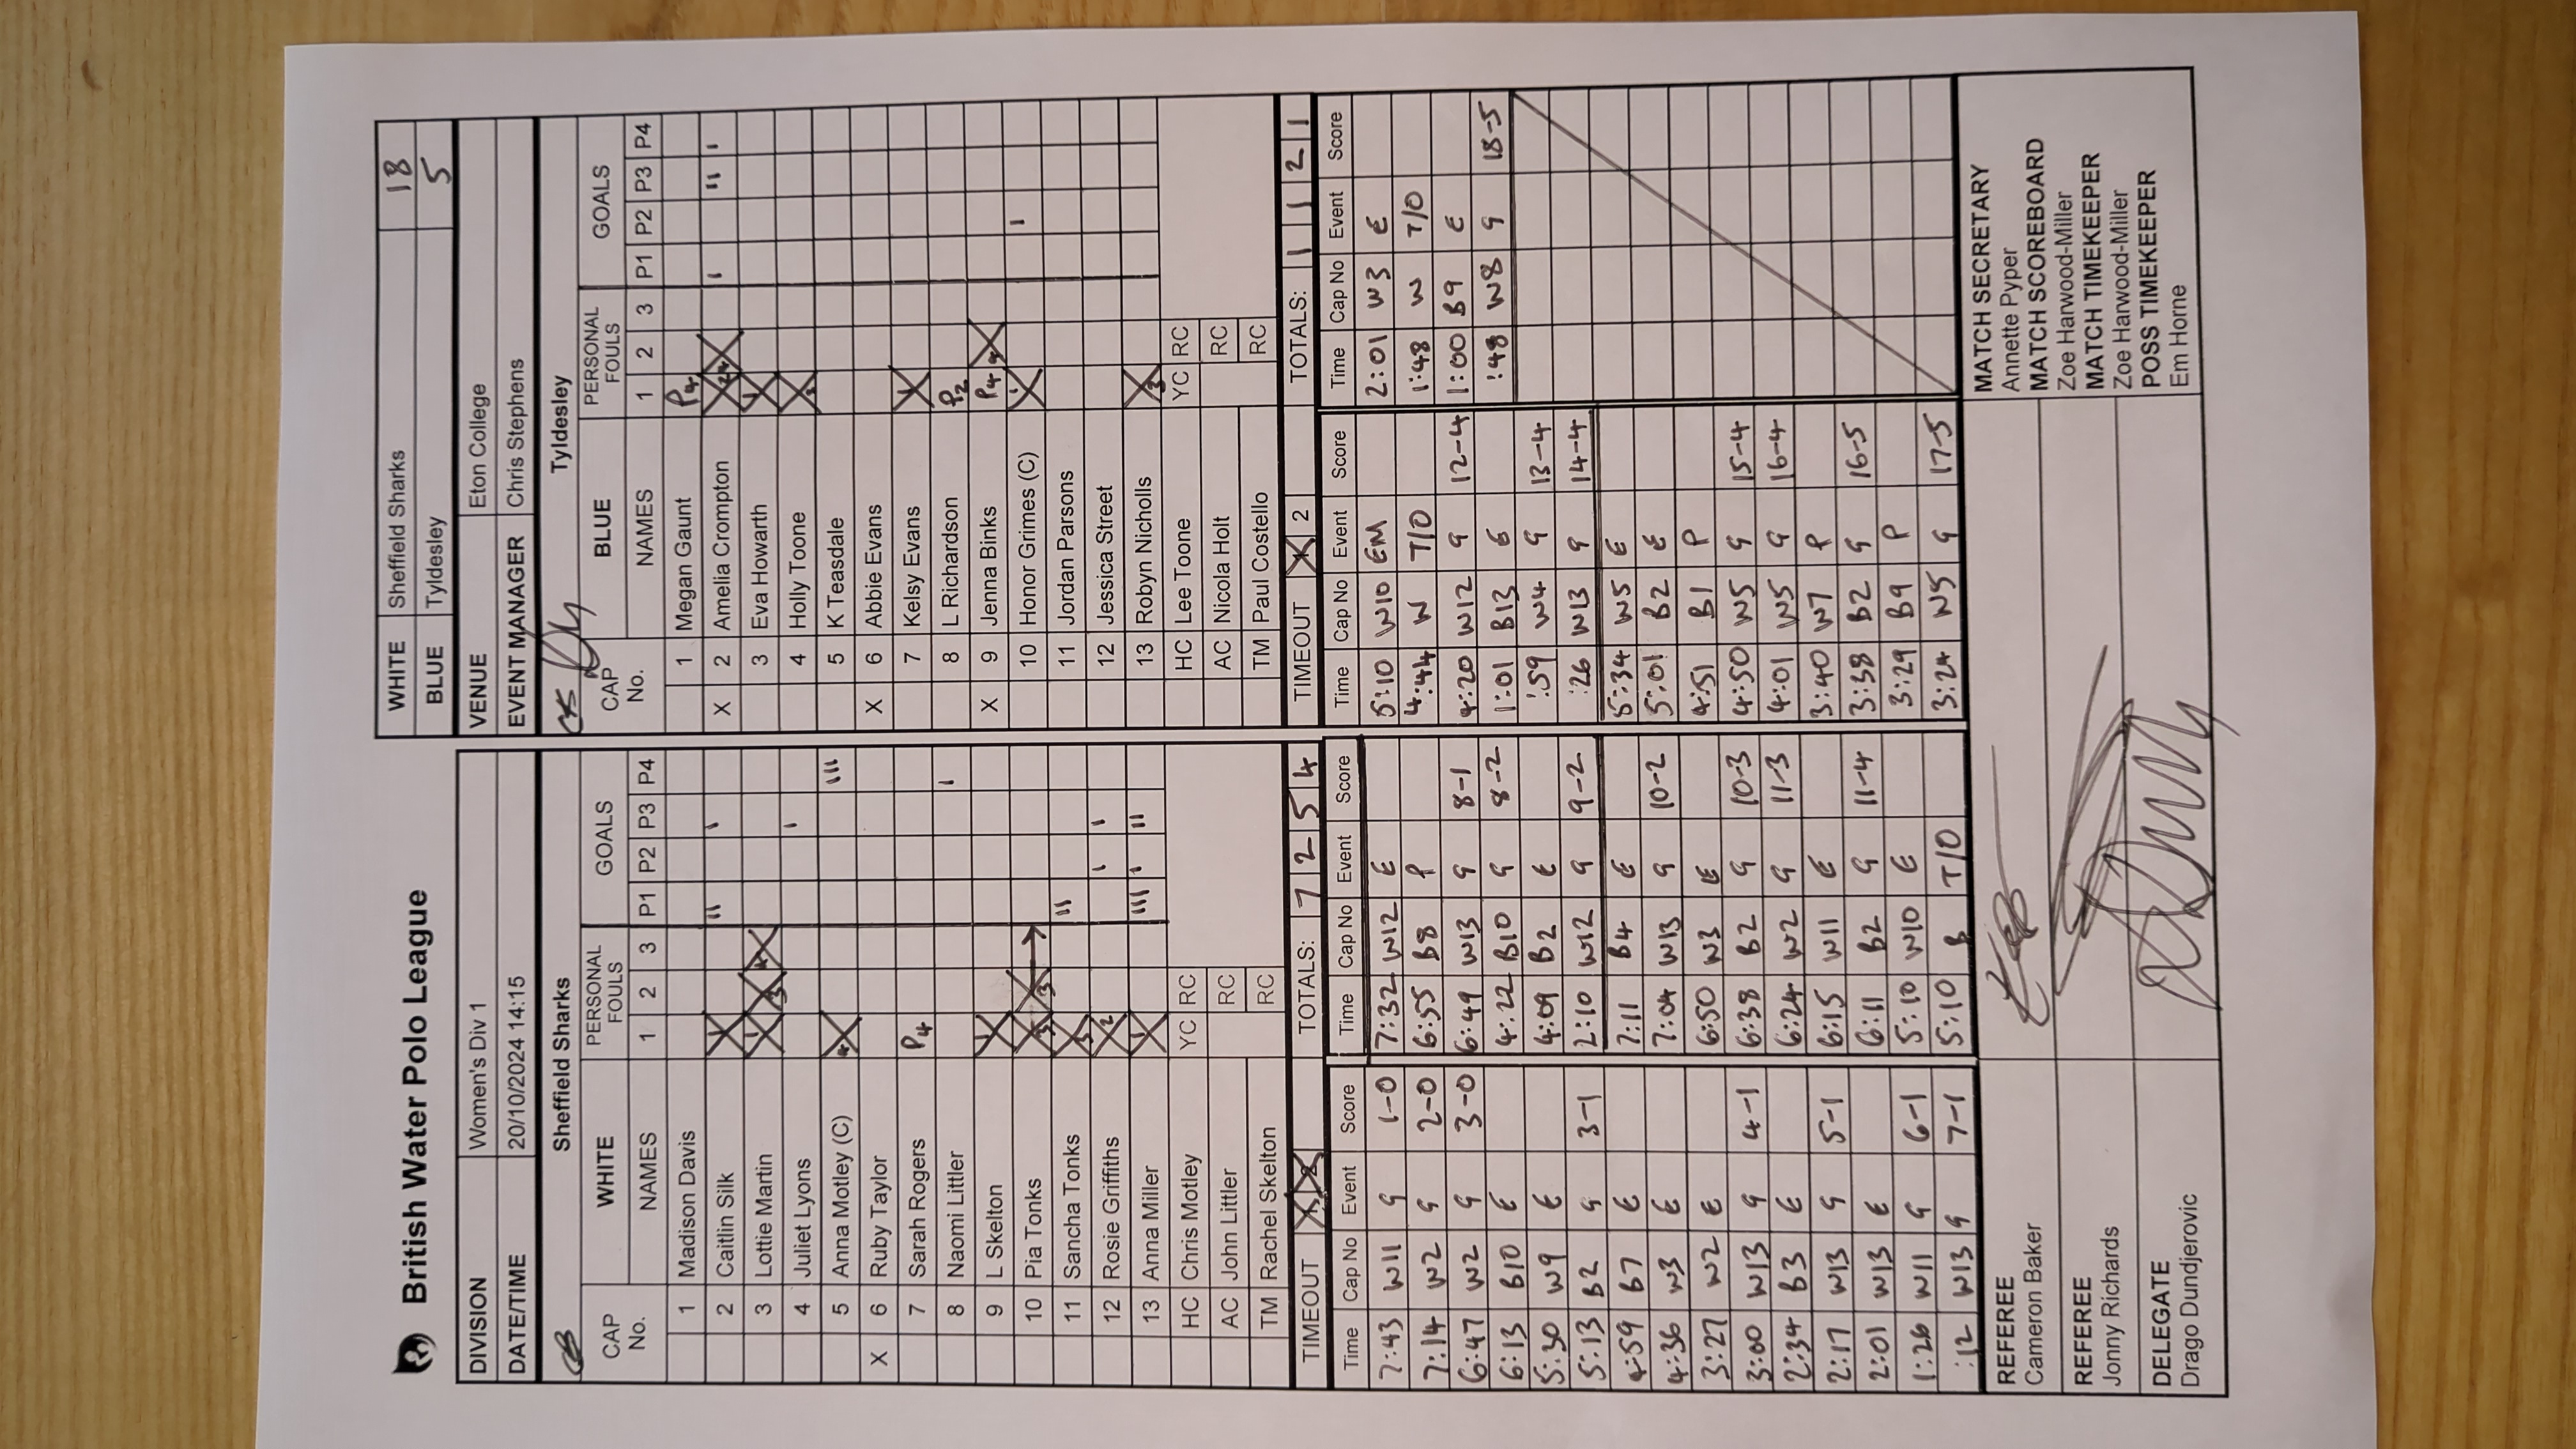 British Water Polo League
WHITE Sheffield Sharks 18
BLUE Tyldesley 5
DIVISION Women's Div 1
DATE/TIME 20/10/2024 14:15
VENUE Eton College
EVENT MANAGER Chris Stephens
Sheffield Sharks
CAP No. WHITE NAMES PERSONAL FOULS 1 2 3 GOALS P1 P2 P3 P4
1 Madison Davis
2 Caitlin Silk II I
3 Lottie Martin
4 Juliet Lyons I
5 Anna Motley (C) III
X 6 Ruby Taylor
7 Sarah Rogers P4
8 Naomi Littler I
9 L Skelton
10 Pia Tonks
11 Sancha Tonks II
12 Rosie Griffiths I I
13 Anna Miller III I II
HC Chris Motley YC RC
AC John Littler RC
TM Rachel Skelton RC
TIMEOUT TOTALS: 7 2 5 4
Tyldesley
CAP No. BLUE NAMES PERSONAL FOULS 1 2 3 GOALS P1 P2 P3 P4
1 Megan Gaunt P4
X 2 Amelia Crompton I II I
3 Eva Howarth
4 Holly Toone
5 K Teasdale
X 6 Abbie Evans
7 Kelsy Evans
8 L Richardson P2
X 9 Jenna Binks P4
10 Honor Grimes (C) I
11 Jordan Parsons
12 Jessica Street
13 Robyn Nicholls
HC Lee Toone YC RC
AC Nicola Holt RC
TM Paul Costello RC
TIMEOUT 2 TOTALS: 1 1 2 1
Time Cap No Event Score
7:43 W11 G 1-0
7:14 W2 G 2-0
6:47 W2 G 3-0
6:13 B10 E
5:30 W9 E
5:13 B2 G 3-1
4:59 B7 E
4:36 W3 E
3:27 W2 E
3:00 W13 G 4-1
2:34 B3 E
2:17 W13 G 5-1
2:01 W13 E
1:26 W11 G 6-1
:12 W13 G 7-1
Time Cap No Event Score
7:32 W12 E
6:55 B8 P
6:49 W13 G 8-1
4:22 B10 G 8-2
4:09 B2 E
2:10 W12 G 9-2
7:11 B4 E
7:04 W13 G 10-2
6:50 W3 E
6:38 B2 G 10-3
6:24 W2 G 11-3
6:15 W11 E
6:11 B2 G 11-4
5:10 W10 E
5:10 B T/O
Time Cap No Event Score
5:10 W10 EM
4:44 W T/O
4:20 W12 G 12-4
1:01 B13 E
:59 W4 G 13-4
:26 W13 G 14-4
5:34 W5 E
5:01 B2 E
4:51 B1 P
4:50 W5 G 15-4
4:01 W5 G 16-4
3:40 W7 P
3:38 B2 G 16-5
3:29 B9 P
3:24 W5 G 17-5
Time Cap No Event Score
2:01 W3 E
1:48 W T/O
1:00 B9 E
:48 W8 G 18-5
REFEREE
Cameron Baker
REFEREE
Jonny Richards
DELEGATE
Drago Dundjerovic
MATCH SECRETARY
Annette Pyper
MATCH SCOREBOARD
Zoe Harwood-Miller
MATCH TIMEKEEPER
Zoe Harwood-Miller
POSS TIMEKEEPER
Em Horne